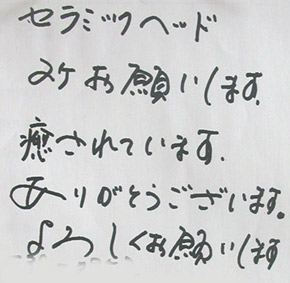 セラミックヘッド
2ケお願いします。
癒されています。
ありがとうございます。
よろしくお願いします